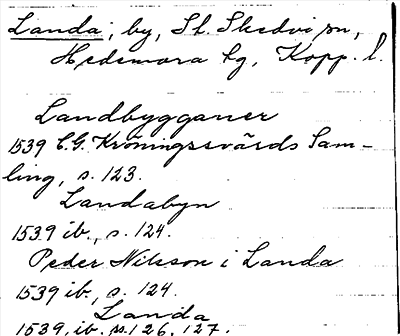 Landa, by, St. Skedvi sn,
Hedemora tg, Kopp. l.
Landbygganer
1539 C.G. Kröningssvärds Sam-
ling, s. 123.
Landabyn
1539 ib., s. 124.
Peder Nilsson i Landa
1539 ib, s. 124.
Landa
1539, ib, s. 126, 127.